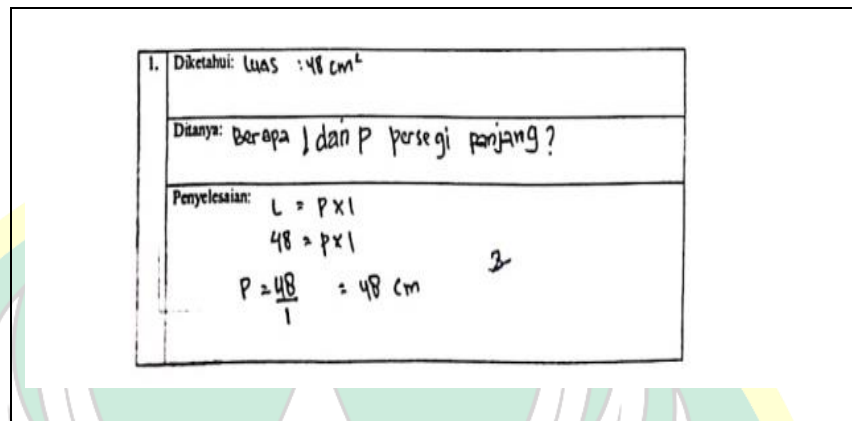 1. Diketahui: Luas : 48 cm²
Ditanya: Berapa l dan p persegi panjang?
Penyelesaian:
L = P x l
48 = p x l
P = 48/1 = 48 cm
3